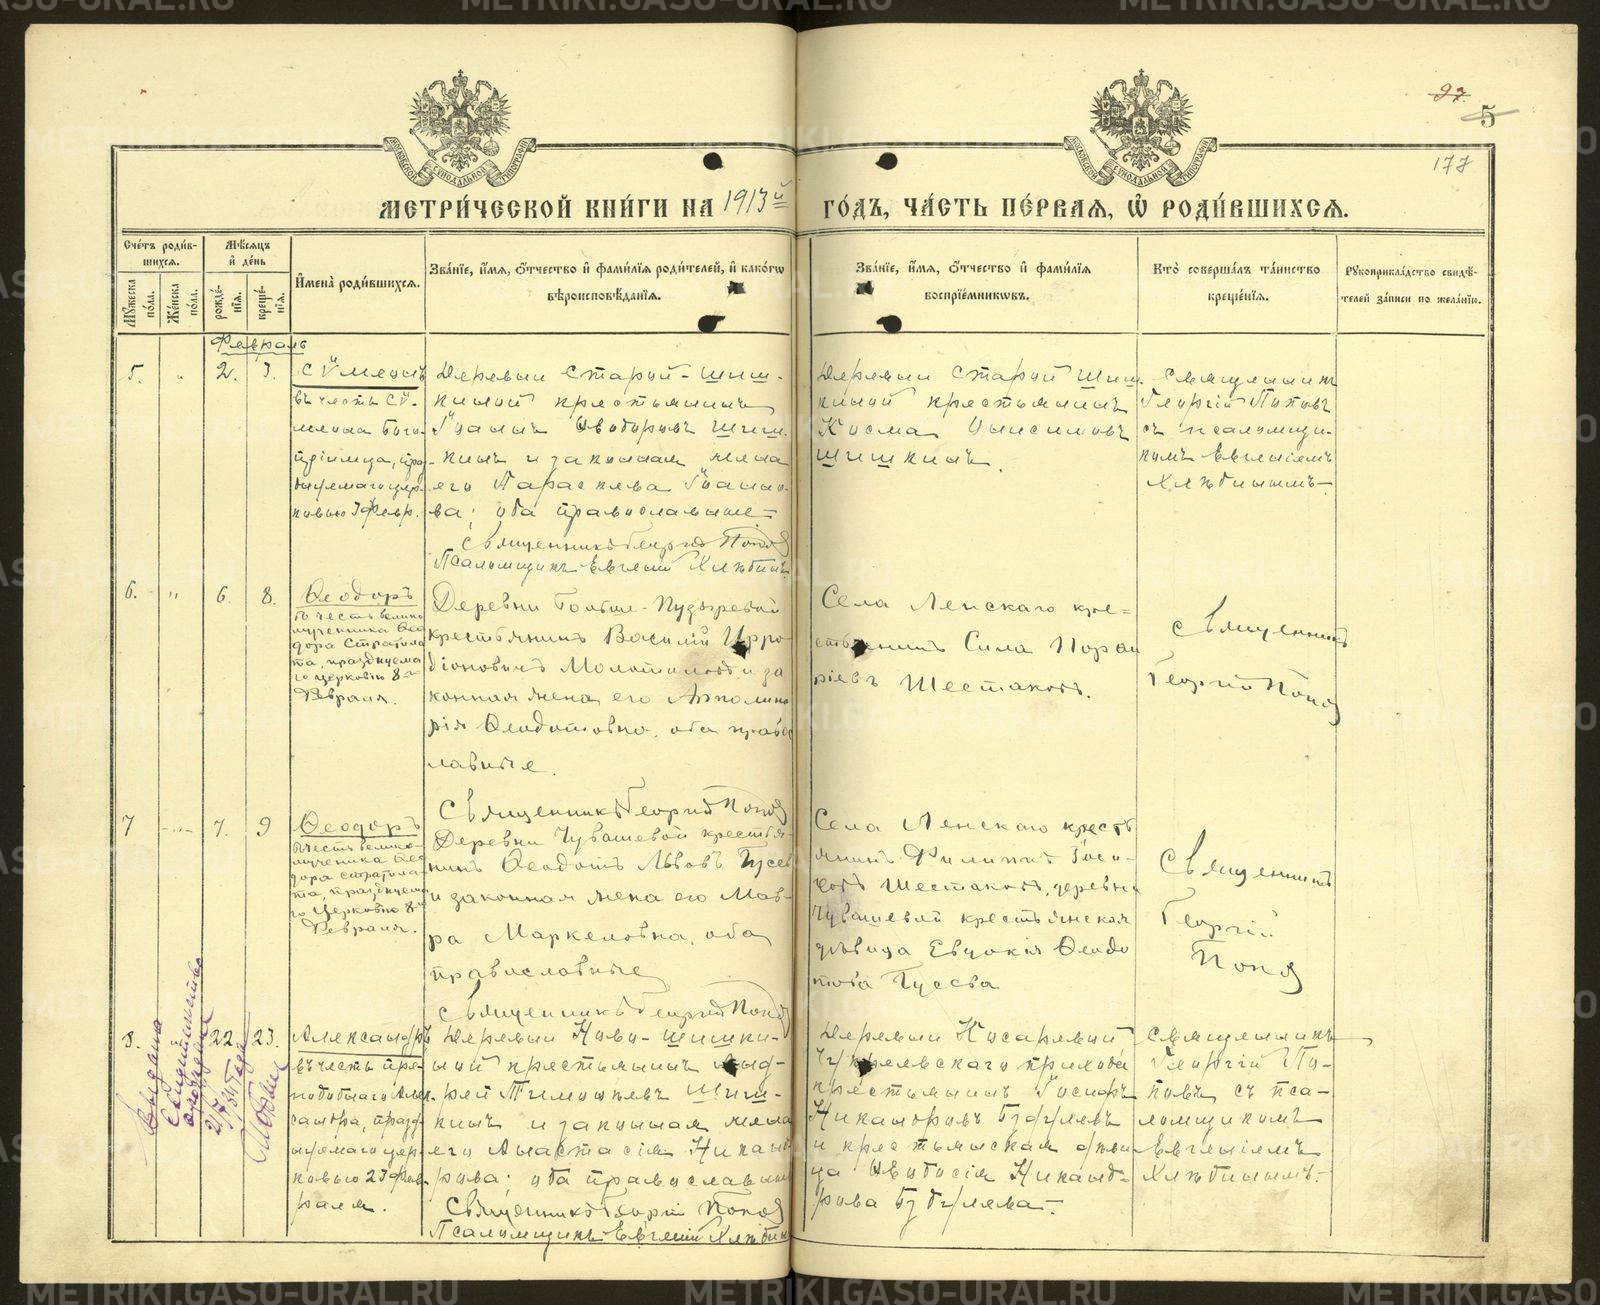 МЕТРИ́ЧЕСКОЙ КНИ́ГИ НА 1913й ГО́ДЪ, ЧА́СТЬ ПЕ́РВАЯ, Ѽ РОДИ́ВШИХСЯ.
97.
5
177
Сче́тъ роди́вшихся.
Мꙋжеска по́ла.
Же́нска по́ла.
Мѣ́сяцъ и҆ де́нь
рожде́нїя.
креще́нїя.
И҆мена̀ роди́вшихся.
Зва́нїе, и҆́мя, ѻ҆́тчество и҆ фами́лїя роди́телей, и҆ како́гѡ
вѣроисповѣ́данїя.
Зва́нїе, и҆́мя, ѻ҆́тчество и҆ фами́лїя
воспрїе́мникѡвъ.
Кто̀ соверша́лъ та́инство
креще́нїя.
Рꙋкоприкла́дство свидѣ́-
телей за́писи по жела́нїю.
Февраль
5. " 2. 3.
Сѵмеонъ
въ честь Сѵ-
меона Бого-
пріимца, празд-
нуемаго цер-
ковью 3 Февр.
Деревни Старой-Шиш-
киной крестьянинъ
Іоаннъ Ѳеодоровъ Шиш-
кинъ и законная жена
его Параскева Іоанно-
ва; оба православные
Священникъ Георгій Поповъ
Псаломщикъ Евгеній Хлѣбинъ
Деревни Старой Шиш-
киной крестьянинъ
Косма Онисимовъ
Шишкинъ.
Священникъ
Георгій Поповъ
съ псаломщи-
комъ Евгеніемъ
Хлѣбинымъ
6. " 6. 8.
Ѳеодоръ
въ честь велико
мученника Ѳео
дора Стратила
та, празднуема
го церковію 8го
Февраля.
Деревни Больше-Пудыревой
крестьянинъ Василій Ирро-
діоновичъ Молотиловъ и за
конная жена его Апполина
рія Ѳеодотовна, оба право
лавные.
Священникъ Георгій Поповъ
Села Ленскаго кре-
стьянинъ Сила Порфи
ріевъ Шестаковъ.
Священникъ
Георгій Поповъ
7 " 7. 9
Ѳеодоръ
въ честь велико-
мученника Ѳео
дора Стратила-
та, празднуема
го Церковію 8го
Февраля.
Деревни Чувашевой крестья-
нинъ Ѳеодотъ Львовъ Гусевъ
и законная жена его Мав-
ра Маркеловна, оба
православные
Священникъ Георгій Поповъ
Села Ленскаго кресть
янинъ Филиппъ
Шестаковъ, деревни
Чувашевой крестьянская
дѣвица Евдокія Ѳеодо
това Гусева
Священникъ
Георгій
Поповъ
8. 22. 23.
Александръ
въ честь пре-
подобнаго Алек-
сандра, празд-
нуемаго цер-
ковью 23 Фев-
раля.
Деревни Ново-Шишки-
ной крестьянинъ Анд-
рей Тимоѳеевъ Шиш-
кинъ и законная жена
его Анастасія Никано-
рова; оба православные
Священникъ Георгій Поповъ
Псаломщикъ Евгеній Хлѣбинъ
Деревни Косаревой
прихода
крестьянинъ Іосифъ
Никаноровъ
и крестьянская дѣви
ца Ѳеодосія Никано-
рова
Священникъ
Георгій По-
повъ съ пса-
ломщикомъ
Евгеніемъ
Хлѣбинымъ.